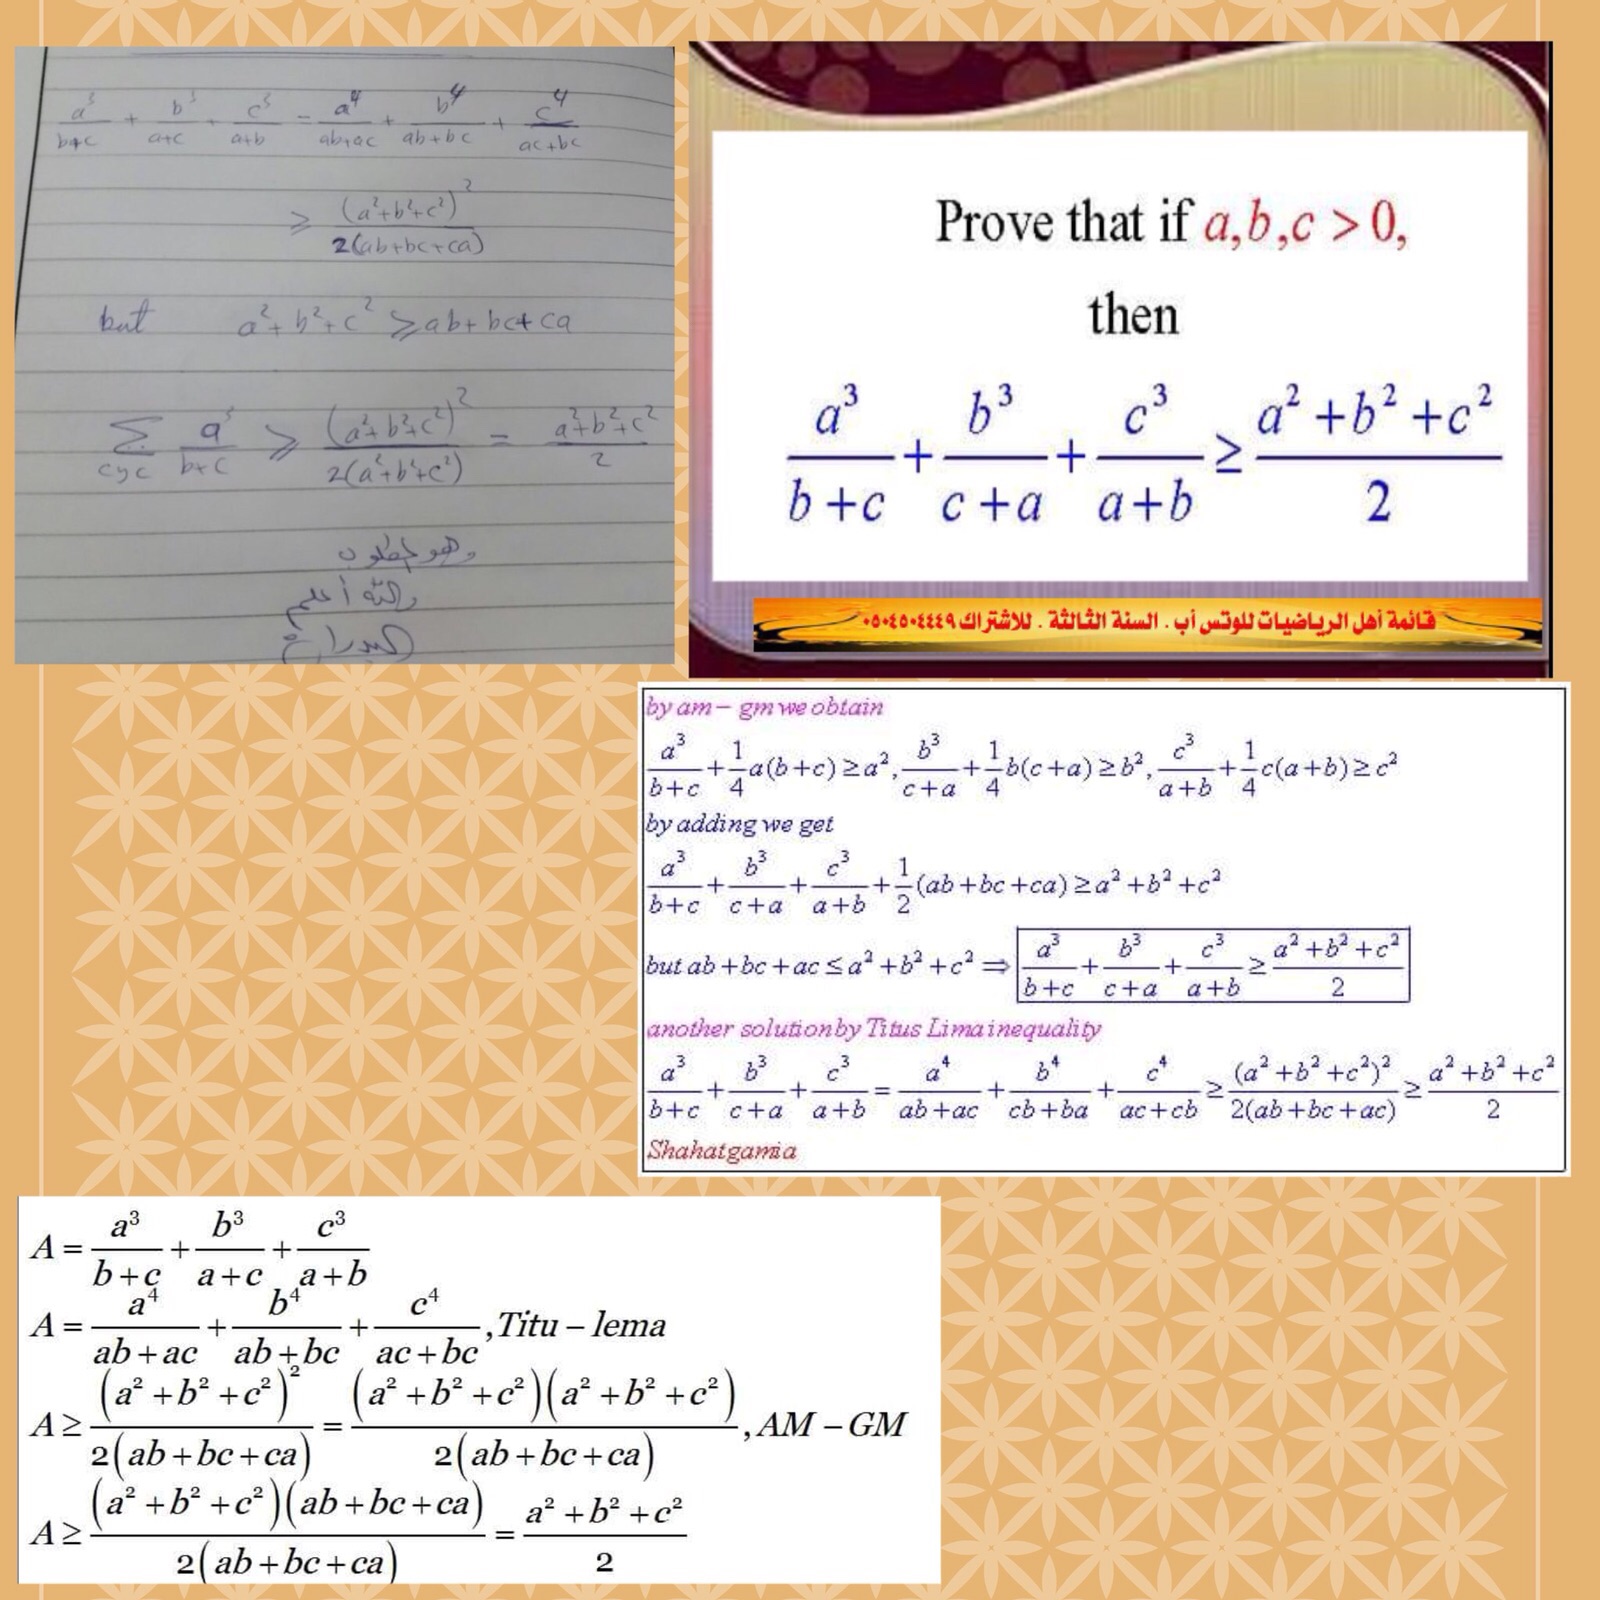 a³/(b+c) + b³/(a+c) + c³/(a+b) = a⁴/(ab+ac) + b⁴/(ab+bc) + c⁴/(ac+bc)
≥ (a²+b²+c²)²/2(ab+bc+ca)
but a²+b²+c² ≥ ab+bc+ca
∑cyc a³/(b+c) ≥ (a²+b²+c²)²/2(a²+b²+c²) = (a²+b²+c²)/2
وهو المطلوب
والله أعلم
Prove that if a,b,c > 0,
then
a³/(b+c) + b³/(c+a) + c³/(a+b) ≥ (a²+b²+c²)/2
قائمة أهل الرياضيات للوتس أب . السنة الثالثة . للاشتراك ٠٥٠٤٥٠٤٤٤٩
by am – gm we obtain
a³/(b+c) + 1/4 a(b+c) ≥ a², b³/(c+a) + 1/4 b(c+a) ≥ b², c³/(a+b) + 1/4 c(a+b) ≥ c²
by adding we get
a³/(b+c) + b³/(c+a) + c³/(a+b) + 1/2 (ab+bc+ca) ≥ a²+b²+c²
but ab+bc+ac ≤ a²+b²+c² ⇒ a³/(b+c) + b³/(c+a) + c³/(a+b) ≥ (a²+b²+c²)/2
another solution by Titus Lima inequality
a³/(b+c) + b³/(c+a) + c³/(a+b) = a⁴/(ab+ac) + b⁴/(cb+ba) + c⁴/(ac+cb) ≥ (a²+b²+c²)²/2(ab+bc+ac) ≥ (a²+b²+c²)/2
Shahatgamia
A = a³/(b+c) + b³/(a+c) + c³/(a+b)
A = a⁴/(ab+ac) + b⁴/(ab+bc) + c⁴/(ac+bc), Titu – lema
A ≥ (a²+b²+c²)²/2(ab+bc+ca) = (a²+b²+c²)(a²+b²+c²)/2(ab+bc+ca), AM – GM
A ≥ (a²+b²+c²)(ab+bc+ca)/2(ab+bc+ca) = (a²+b²+c²)/2